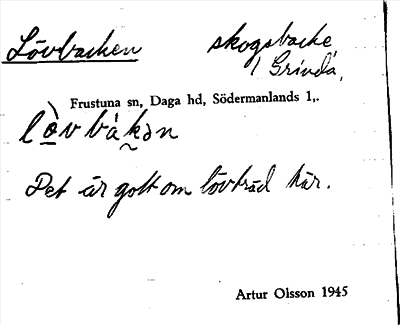 Lövbacken skogsbacke
i Grindå,
Frustuna sn, Daga hd, Södermanlands l,.
lò̱vbák̰ən
Det är gott om lövträd här.
Artur Olsson 1945